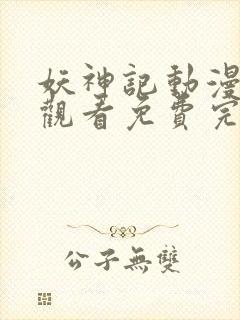 妖神記動漫
觀看免費完
公子無雙